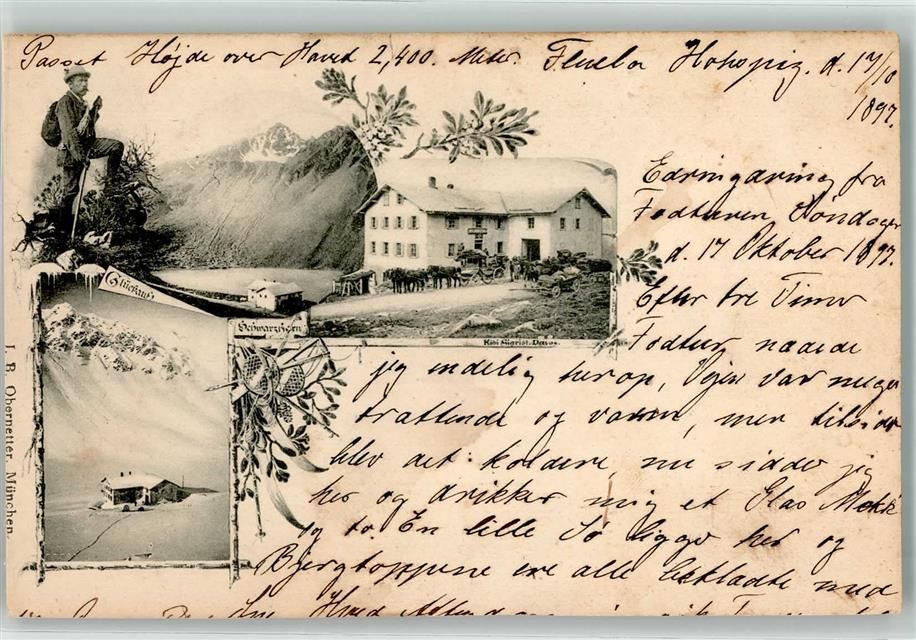 Passet Højde over Havet 2,400. Meter. Fluela Hohspiz. d. 17/10
1897.
Erindring fra
Fodturen, Søndagen
d. 17 Oktober 1897.
Efter tre Timer
Fodtur naaede
jeg endelig herop, Vejen var meget
trættende og varm, men tilsidst
blev det koldere, nu sidder jeg
her og drikker mig et Glas Mælk
og to. En lille Sø ligger her og
Bjergtoppene ere alle beklædte med
Glückauf
Schwarzhorn
Kibi Sigrist. Davos.
J. B. Obernetter, München.